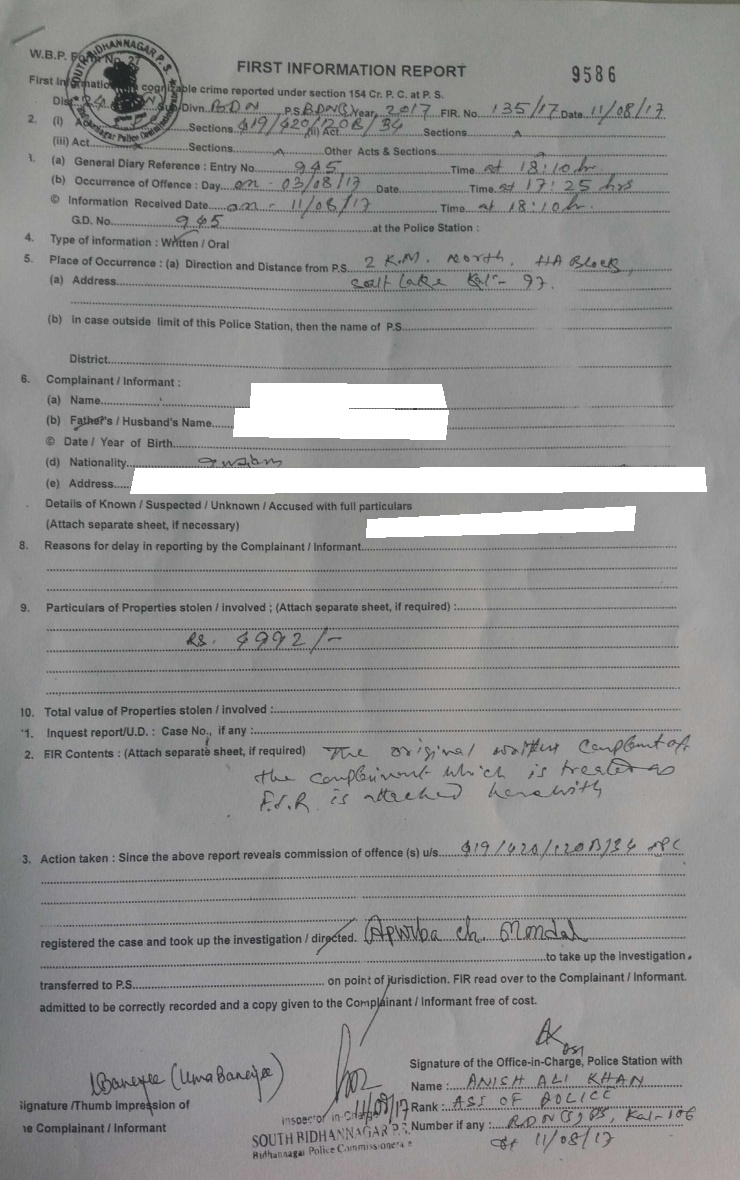 W.B.P. Form No. 27
SOUTH BIDHANNAGAR P.S.
Bidhannagar Police Commissionerate
FIRST INFORMATION REPORT
9586
First Information cognizable crime reported under section 154 Cr. P. C. at P. S.
Dist. Divn. BDN P.S. BDN(S) Year, 2017 FIR. No. 135/17 Date 11/08/17
2. (i) Act Sections 419/420/120B/34 (ii) Act Sections
(iii) Act Sections Other Acts & Sections
1. (a) General Diary Reference : Entry No. 945 Time at 18:10 hr
(b) Occurrence of Offence : Day on - 03/08/17 Date Time at 17:25 hrs
© Information Received Date on - 11/08/17 Time at 18:10 hr.
G.D. No. 945 at the Police Station :
4. Type of information : Written / Oral
5. Place of Occurrence : (a) Direction and Distance from P.S. 2 K.M. North, HA Block,
(a) Address Salt Lake Kal- 97.
(b) in case outside limit of this Police Station, then the name of P.S.
District
6. Complainant / Informant :
(a) Name
(b) Father's / Husband's Name
© Date / Year of Birth
(d) Nationality
(e) Address
Details of Known / Suspected / Unknown / Accused with full particulars
(Attach separate sheet, if necessary)
8. Reasons for delay in reporting by the Complainant / Informant
9. Particulars of Properties stolen / involved ; (Attach separate sheet, if required) :
Rs. 4992/-
10. Total value of Properties stolen / involved :
1. Inquest report/U.D. : Case No., if any :
2. FIR Contents : (Attach separate sheet, if required) The original written complaint of
the complainant which is treated as
F.I.R. is attached herewith
3. Action taken : Since the above report reveals commission of offence (s) u/s 419/420/120B/34 IPC
registered the case and took up the investigation / directed. Apurba ch. Mondal
to take up the investigation.
transferred to P.S. on point of jurisdiction. FIR read over to the Complainant / Informant.
admitted to be correctly recorded and a copy given to the Complainant / Informant free of cost.
UBanerjee (Uma Banerjee)
ignature /Thumb Impression of
e Complainant / Informant
11/08/17
Inspector in-Charge
SOUTH BIDHANNAGAR P.S.
Bidhannagar Police Commissionerate
Signature of the Office-in-Charge, Police Station with
Name : ANISH ALI KHAN
Rank : ASI OF POLICE
Number if any : BDN(S) PS, Kal-106
Dt 11/08/17